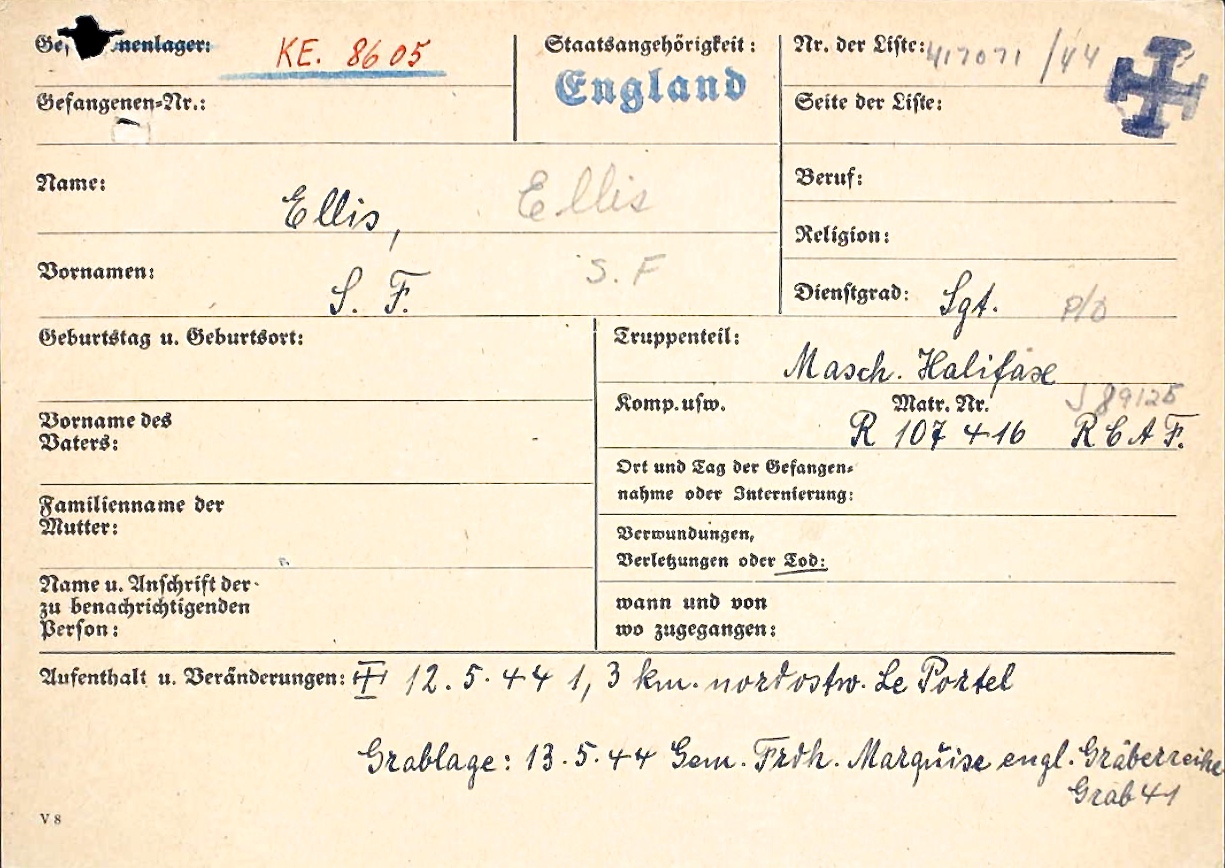 Ge nenlager: KE. 8605
Staatsangehörigkeit:
England
Nr. der Liste: 417071/44
Gefangenen-Nr.:
Seite der Liste:
Name: Ellis, Ellis
Beruf:
Religion:
Vornamen: S. F. S. F
Dienstgrad: Sgt. P/O
Geburtstag u. Geburtsort:
Truppenteil:
Masch. Halifax
Komp.usw. Matr. Nr. J 89125
R 107416 RCAF.
Vorname des
Vaters:
Ort und Tag der Gefangen-
nahme oder Internierung:
Familienname der
Mutter:
Verwundungen,
Verletzungen oder Tod:
Name u. Anschrift der
zu benachrichtigenden
Person:
wann und von
wo zugegangen:
Aufenthalt u. Veränderungen: 12.5.44 1,3 km. nordostw. Le Portel
Grablage: 13.5.44 Gem. Frdh. Marquise engl. Gräberreihe
Grab 41
V 8